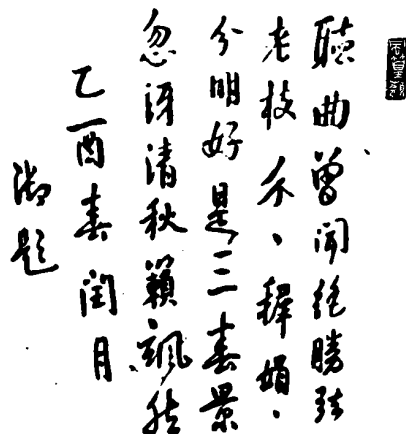 聽曲曾聞絕勝弦
老枝个〻穉娟〻
分明好是三春景
忽訝清秋籟颯然
乙酉春閏月
御題